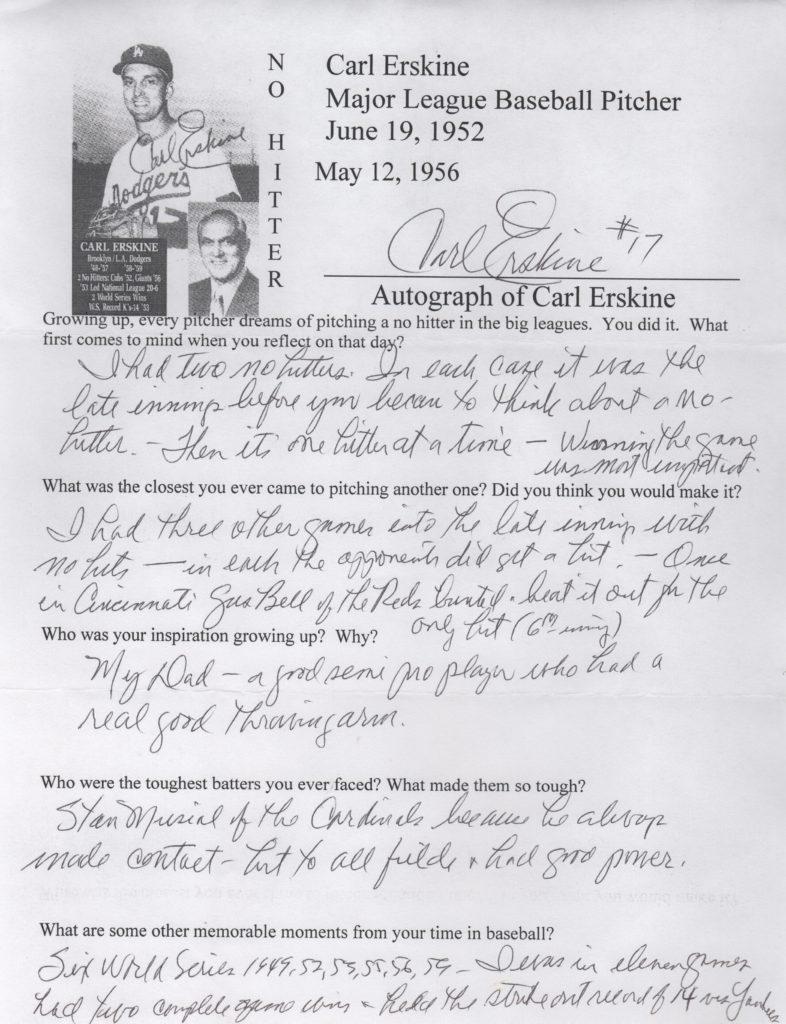 NO HITTER
Carl Erskine
Major League Baseball Pitcher
June 19, 1952
May 12, 1956
Carl Erskine
Dodgers
17
CARL ERSKINE
Brooklyn/L.A. Dodgers
'48-'57 '58-'59
2 No Hitters: Cubs '52, Giants '56
'53 Led National League 20-6
2 World Series Wins
W.S. Record K's-14 '53
Carl Erskine #17
Autograph of Carl Erskine
Growing up, every pitcher dreams of pitching a no hitter in the big leagues. You did it. What
first comes to mind when you reflect on that day?
I had two no hitters. In each case it was the
late innings before you began to think about a no-
hitter. – Then its one hitter at a time – Winning the game
was most important.
What was the closest you ever came to pitching another one? Did you think you would make it?
I had three other games into the late innings with
no hits – in each the opponents did get a hit. – Once
in Cincinnati Gus Bell of the Reds bunted & beat it out for the
only hit (6th inning)
Who was your inspiration growing up? Why?
My Dad – a good semi pro player who had a
real good throwing arm.
Who were the toughest batters you ever faced? What made them so tough?
Stan Musial of the Cardinals because he always
made contact – hit to all fields & had good power.
What are some other memorable moments from your time in baseball?
Six World Series 1949, 52, 53, 55, 56, 59 – I was in eleven games
had two complete game wins & held the strike out record of 14 vs Yankees